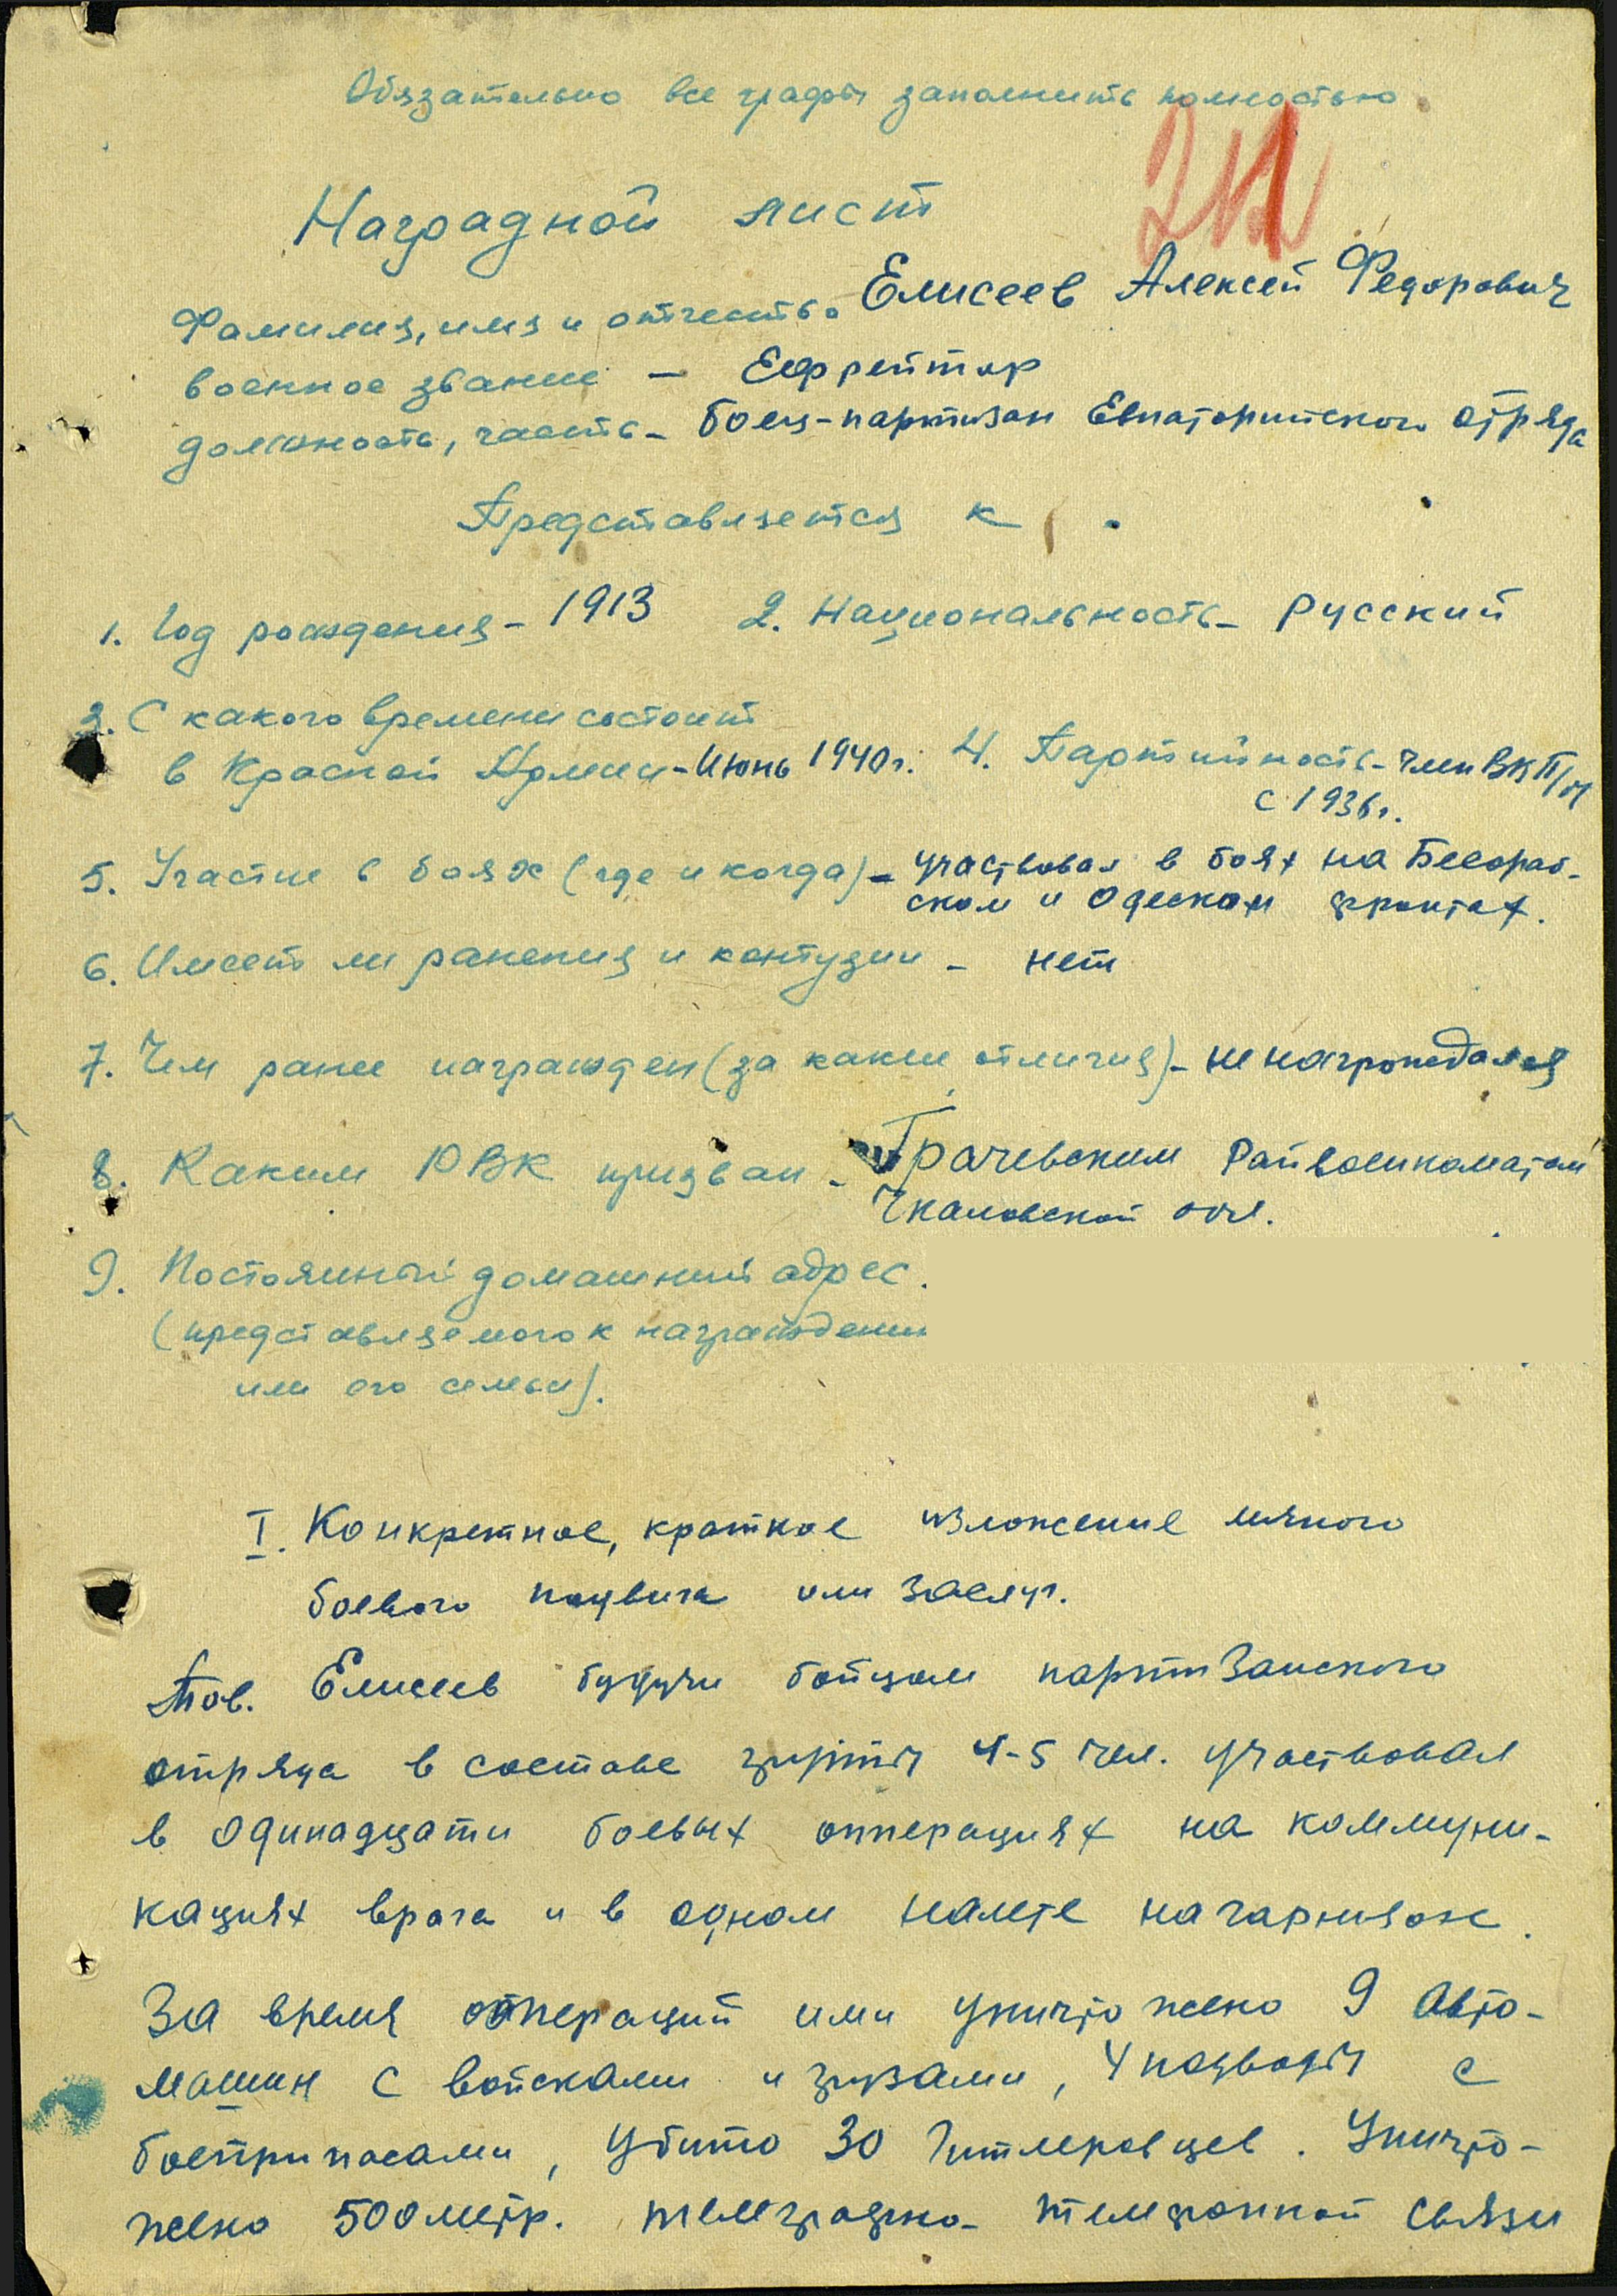 Обязательно все графы заполнить полностью
Наградной лист
Фамилия, имя и отчество Елисеев Алексей Федорович
военное звание — Ефрейтор
должность, часть - боец-партизан Евпаторийского отряда
Представляется к
1. Год рождения - 1913 2. Национальность - Русский
3. С какого времени состоит
в Красной Армии - Июнь 1940 г. 4. Партийность - член ВКП/б/
с 1936 г.
5. Участие в боях (где и когда) - участвовал в боях на Бессараб-
ском и Одеском фронтах.
6. Имеет ли ранения и контузии - нет
7. Чем ранее награжден (за какие отличия) - не награждался
8. Каким РВК призван - Грачевским Райвоенкоматом
Чкаловской обл.
9. Постоянный домашний адрес.
(представляемого к награждению
или его семьи).
I. Конкретное, краткое изложение личного
боевого подвига или заслуг.
Тов. Елисеев будучи бойцом партизанского
отряда в составе группы 4-5 чел. участвовал
в одинадцати боевых опперациях на коммуни-
кациях врага и в одном налете на гарнизон.
За время оппераций ими уничтожено 9 авто-
машин с войсками и грузами, 4 подводы с
боеприпасами, убито 30 гитлеровцев. Уничто-
жено 500 метр. телеграфно-телефонной связи